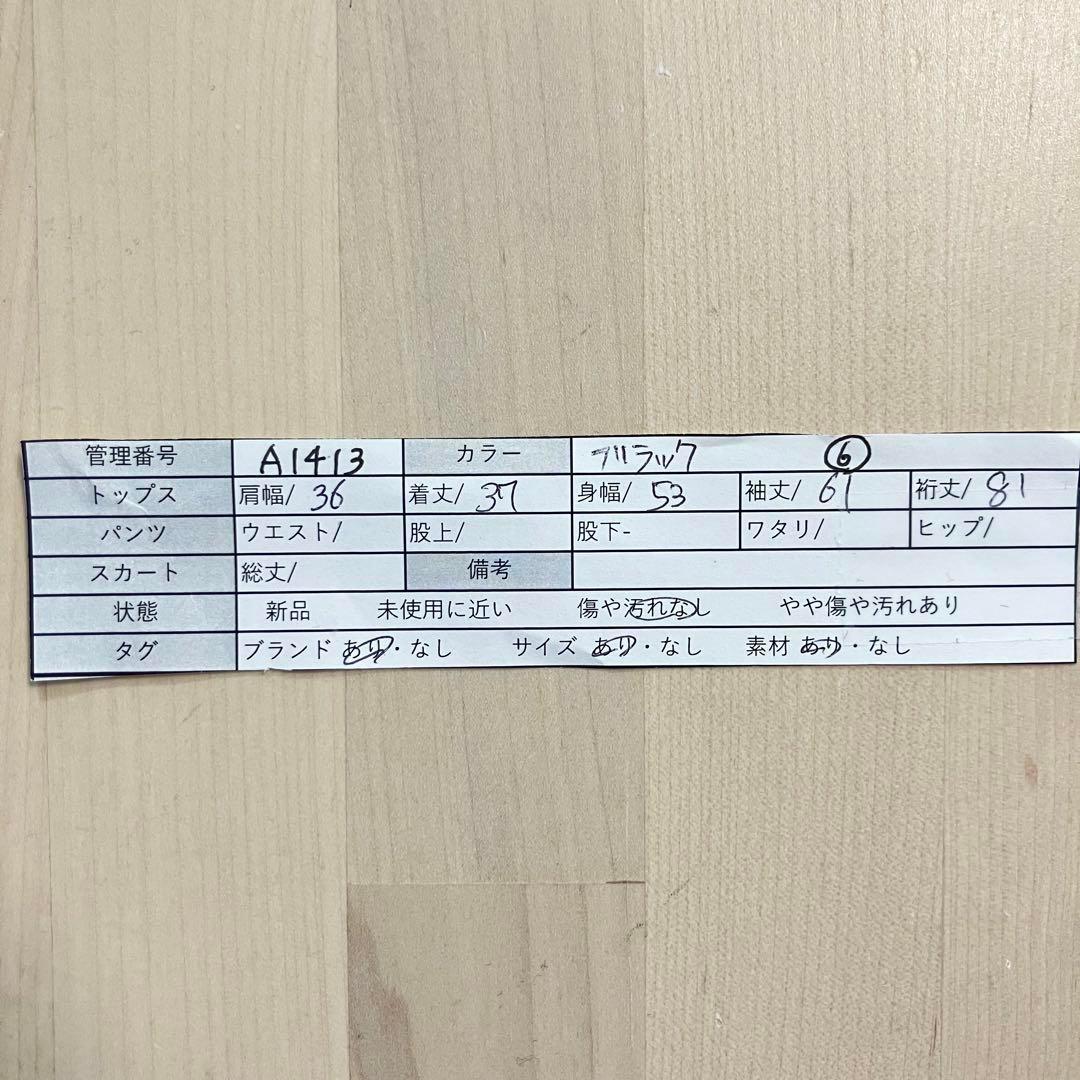 管理番号 A1413 カラー ブラック ⑥
トップス 肩幅/ 36 着丈/ 37 身幅/ 53 袖丈/ 61 裄丈/ 81
パンツ ウエスト/ 股上/ 股下- ワタリ/ ヒップ/
スカート 総丈/ 備考
状態 新品 未使用に近い 傷や汚れなし やや傷や汚れあり
タグ ブランド あり・なし サイズ あり・なし 素材 あり・なし